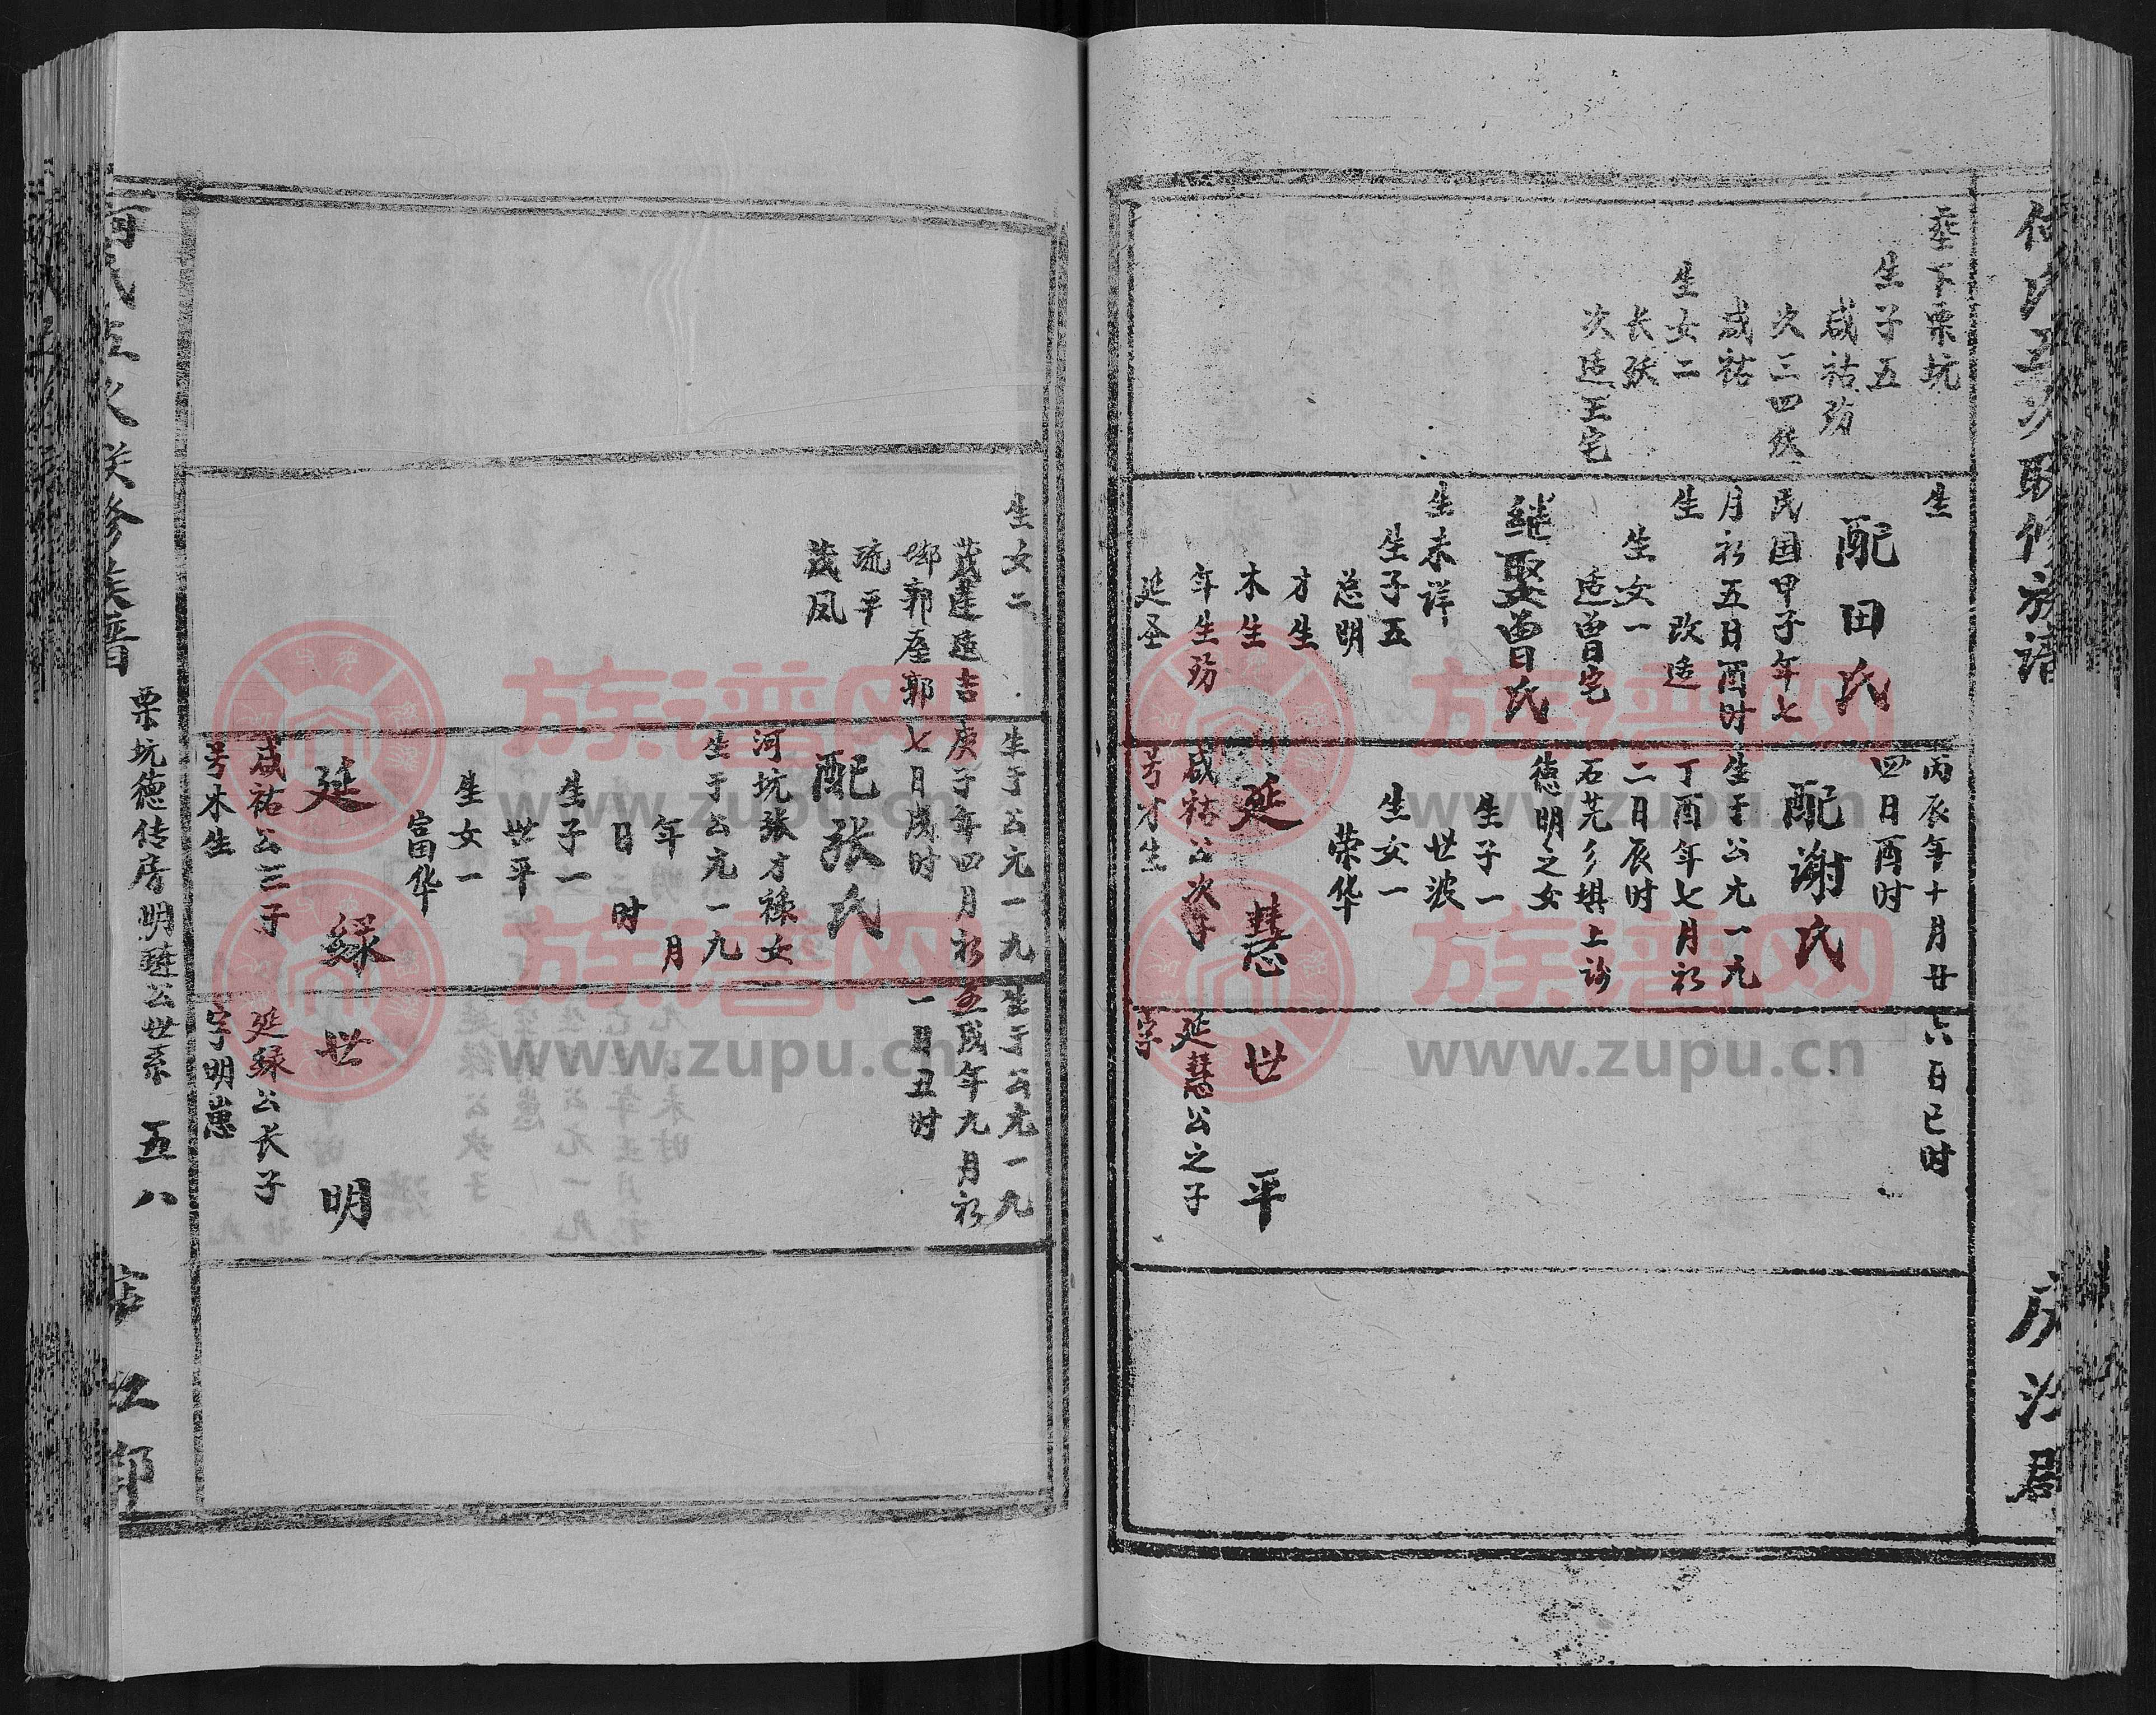 何氏五次联修族谱
葬下栗坑
生子五
咸祜殇
次三四佚
咸祐
生女二
长张
次适王宅
生
配田氏
民国甲子年七
月初五日酉时
生 改适
生女一
适曾宅
继娶曾氏
生未详
生子五
总明
才生
木生
年生殇
延圣
丙辰年十月廿
四日酉时
配谢氏
生于公元一九
丁酉年七月初
二月辰时
石芫乡塅上谢
德明之女
生子一
世波
生女一
荣华
延慧
咸祐公次子
号才生
六日巳时
世平
延慧公之子
字
生女二
茂莲适吉
埠郭屋郭
琉平
茂凤
生于公元一九
庚子年四月初
七月戌时
配张氏
河坑张才禄女
生于公元一九
年 月
日 时
生子一
世平
生女一
富华
延绿
咸祐公三子
号木生
生于公元一九
戊年九月初
一日丑时
世明
延绿公长子
字明崽
栗坑德传房明琏公世系 五八
何氏五次联修族谱
族谱网
www.zupu.cn
族谱网
www.zupu.cn
族谱网
www.zupu.cn
族谱网
www.zupu.cn